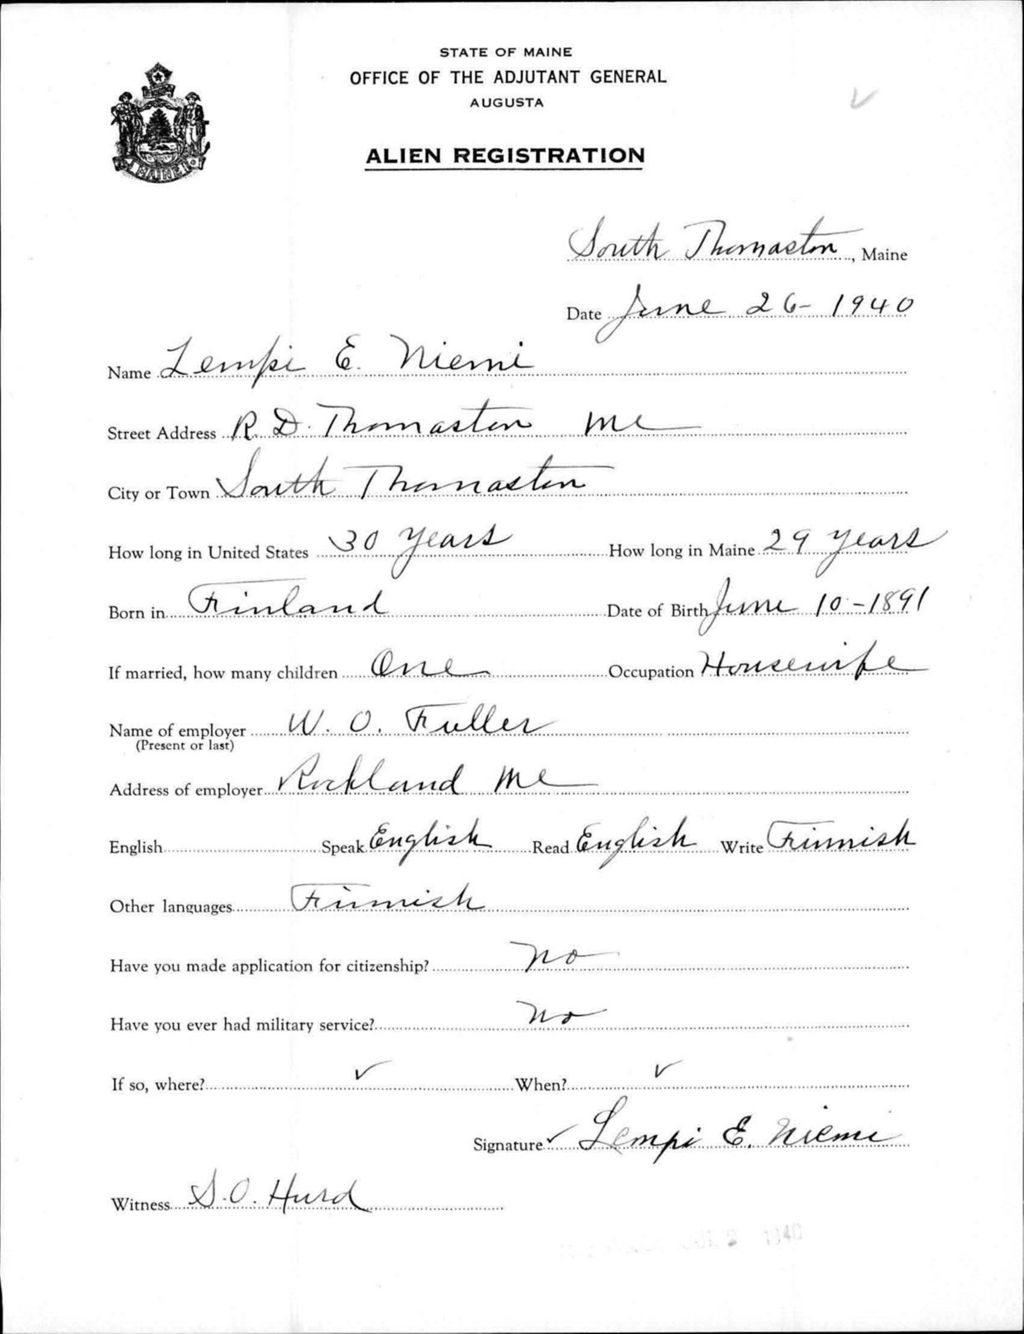 STATE OF MAINE
OFFICE OF THE ADJUTANT GENERAL
AUGUSTA
ALIEN REGISTRATION
South Thomaston, Maine
Date June 26- 1940
Name Lempi E. Niemi
Street Address R. D. Thomaston Me
City or Town South Thomaston
How long in United States 30 years How long in Maine 29 years
Born in Finland Date of Birth June 10-1891
If married, how many children One Occupation Housewife
Name of employer W. O. Fuller
(Present or last)
Address of employer Rockland Me
English Speak English Read English Write Finnish
Other languages Finnish
Have you made application for citizenship? no
Have you ever had military service? no
If so, where? ✓ When? ✓
Signature ✓ Lempi E. Niemi
Witness S. O. Hurd
2 1940